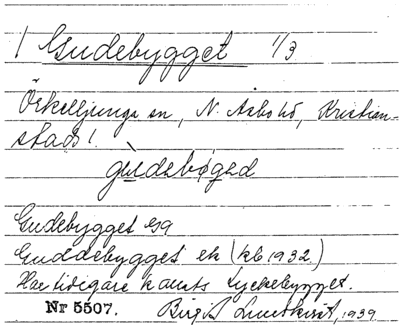 1 Gudebygget 1/3
Örkelljunga sn, N. Åsbo hd, Kristian-
stads l.
gùdebøged
Gudebygget GA
Guddebygget ek (kb 1932.)
Har tidigare kallats Lyckebygget.
Nr 5507. Birgit Lundkvist, 1939